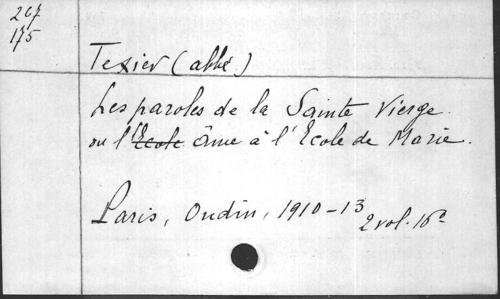 267
175
Texier (abbé)
Les paroles de la Sainte Vierge
ou l'Ecole âme à l'Ecole de Marie.
Paris, Oudin, 1910-13
2 vol. 16°